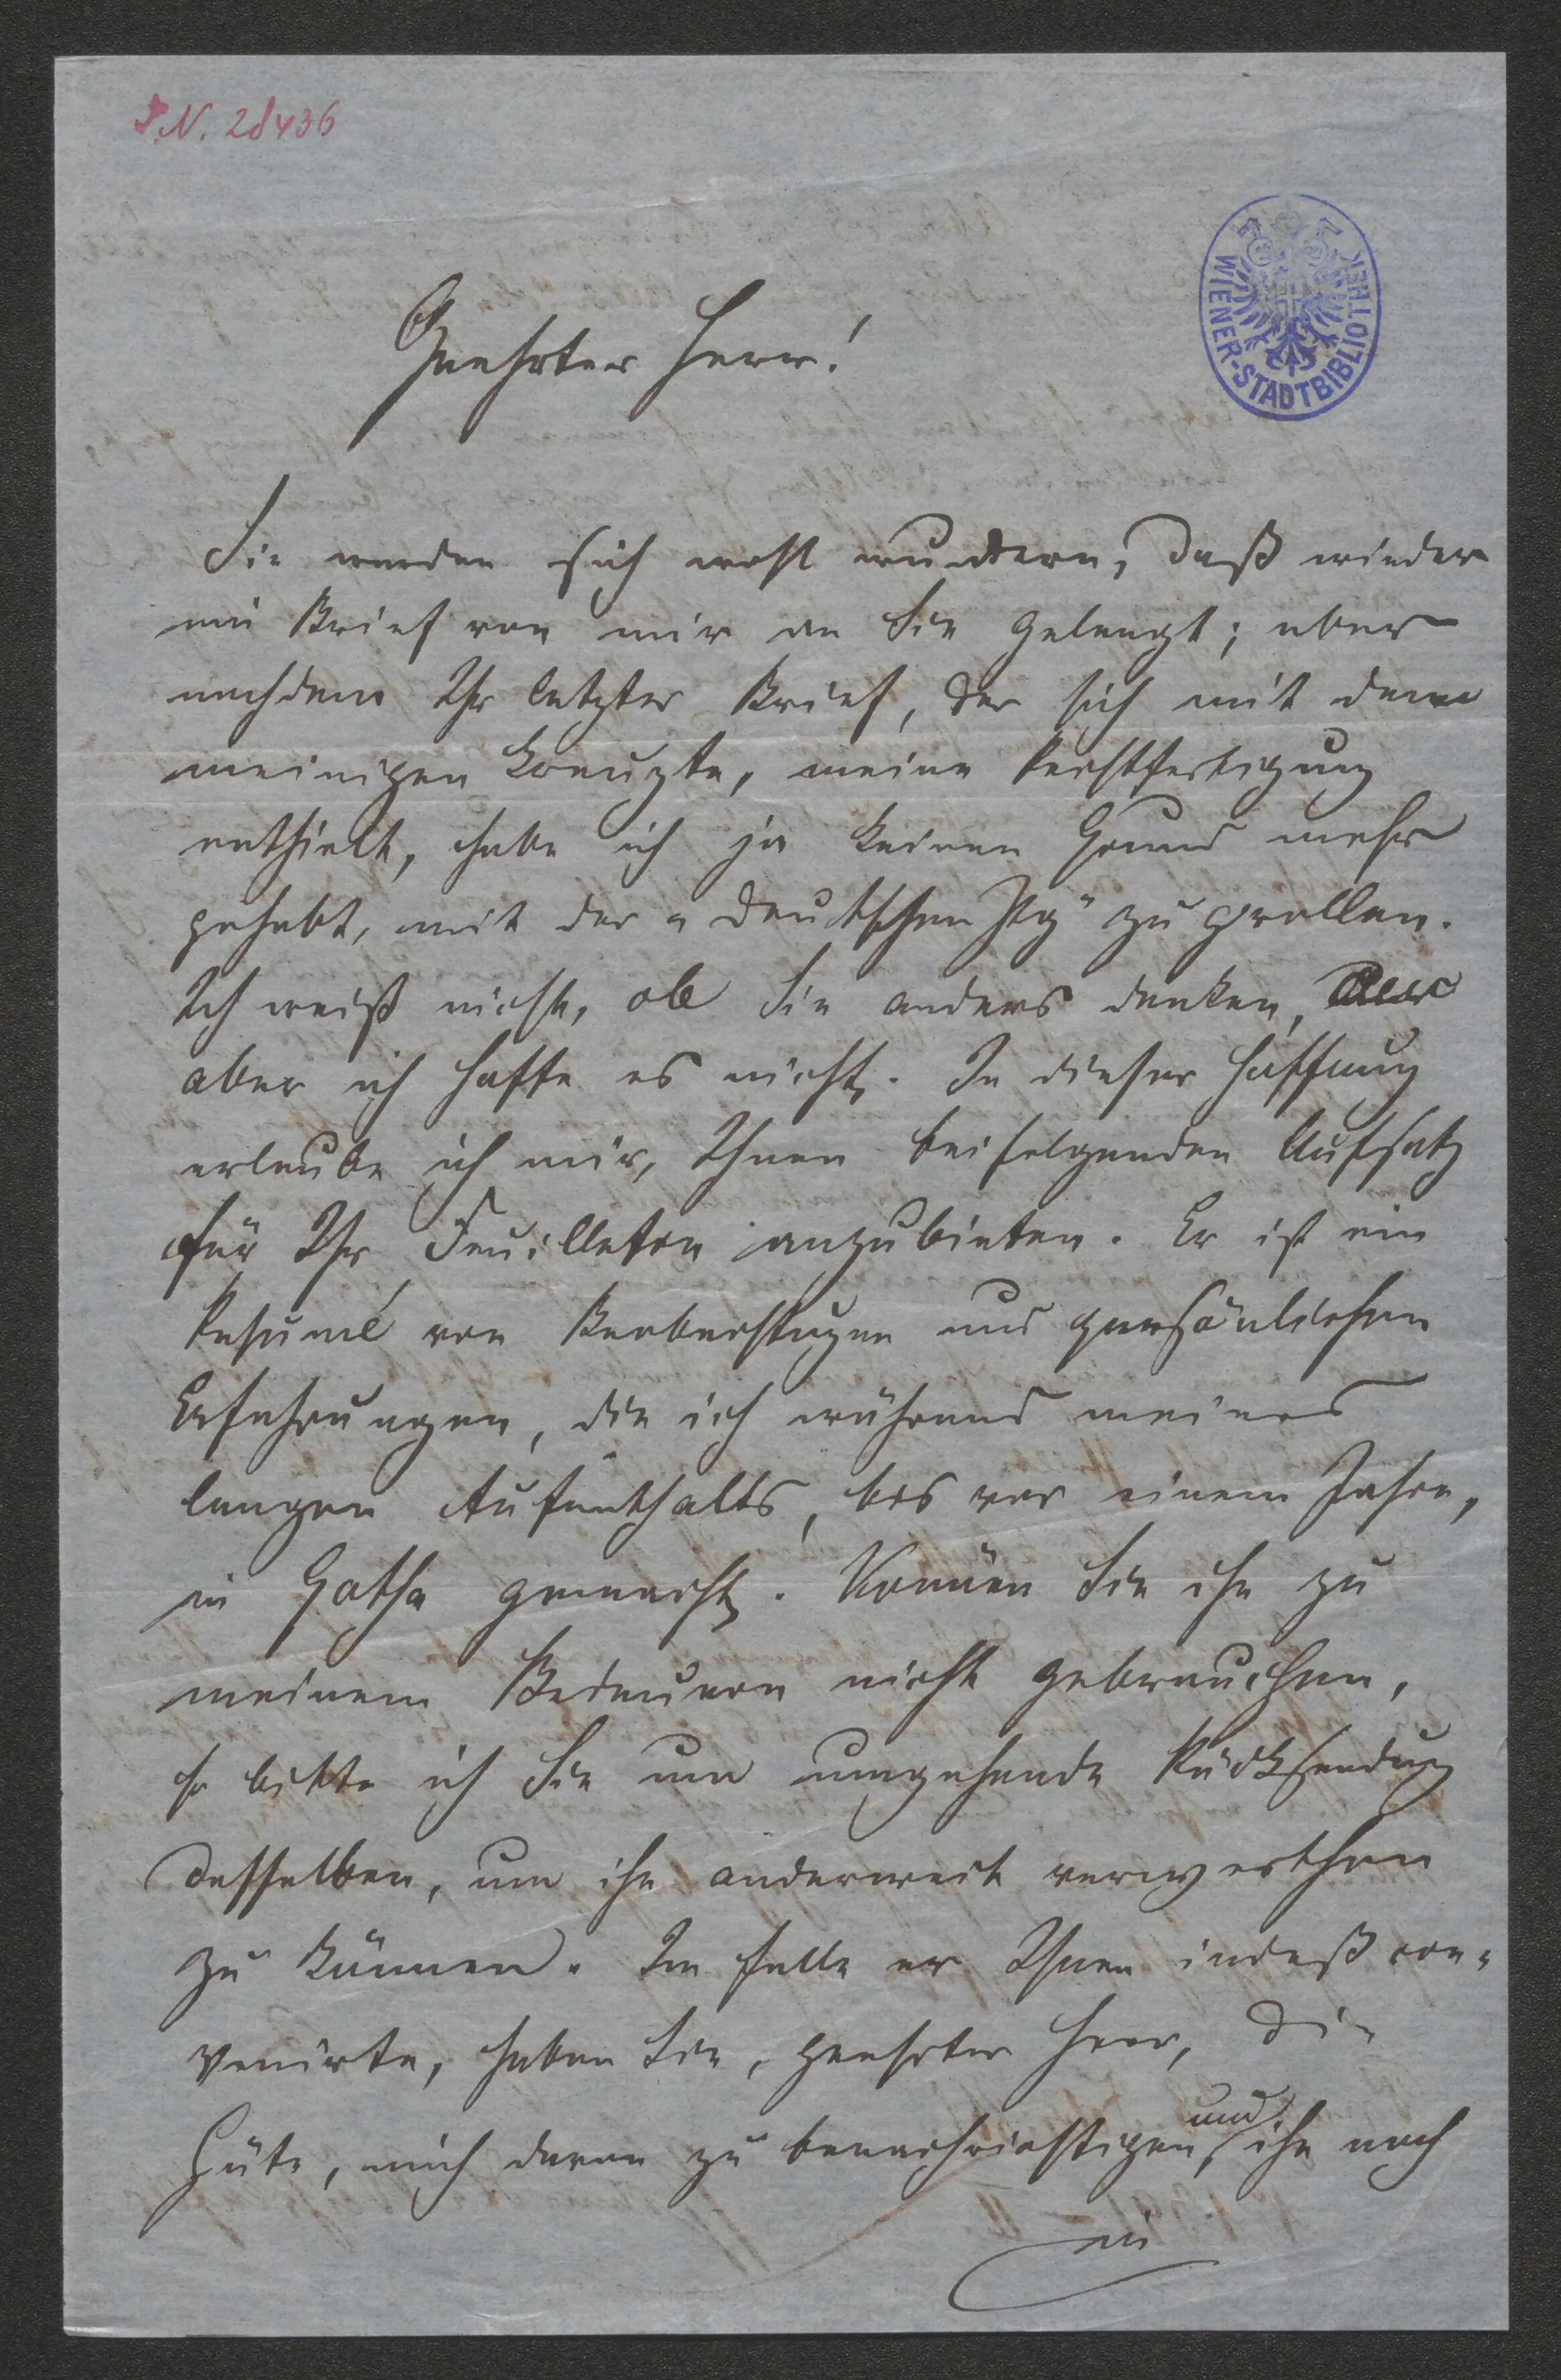 I.N. 28436
WIENER-STADTBIBLIOTHEK
Geehrter Herr!
Sie werden sich wohl wundern, daß wieder
ein Brief von mir an Sie gelangt; aber
nachdem Ihr letzter Brief, der sich mit dem
meinigen kreuzte, meine Rechtfertigung
enthielt, habe ich ja keinen Grund mehr
gehabt, mit der „Deutschen Ztg" zu grollen.
Ich weiß nicht, ob Sie anders denken,
aber ich hoffe es nicht. In dieser Hoffnung
erlaube ich mir, Ihnen beifolgenden Aufsatz
für Ihr Feuilleton anzubieten. Er ist ein
Resumé von Beobachtungen und persönlichen
Erfahrungen, die ich während meines
langen Aufenthalts, bis vor einem Jahre,
in Gotha gemacht. Können Sie ihn zu
meinem Bedauern nicht gebrauchen,
so bitte ich Sie um umgehende Rücksendung
desselben, um ihn anderweit verwerthen
zu können. Im Falle er Ihnen indeß con-
venirte, haben Sie, geehrter Herr, die
Güte, mich davon zu benachrichtigen und ihn noch
ein